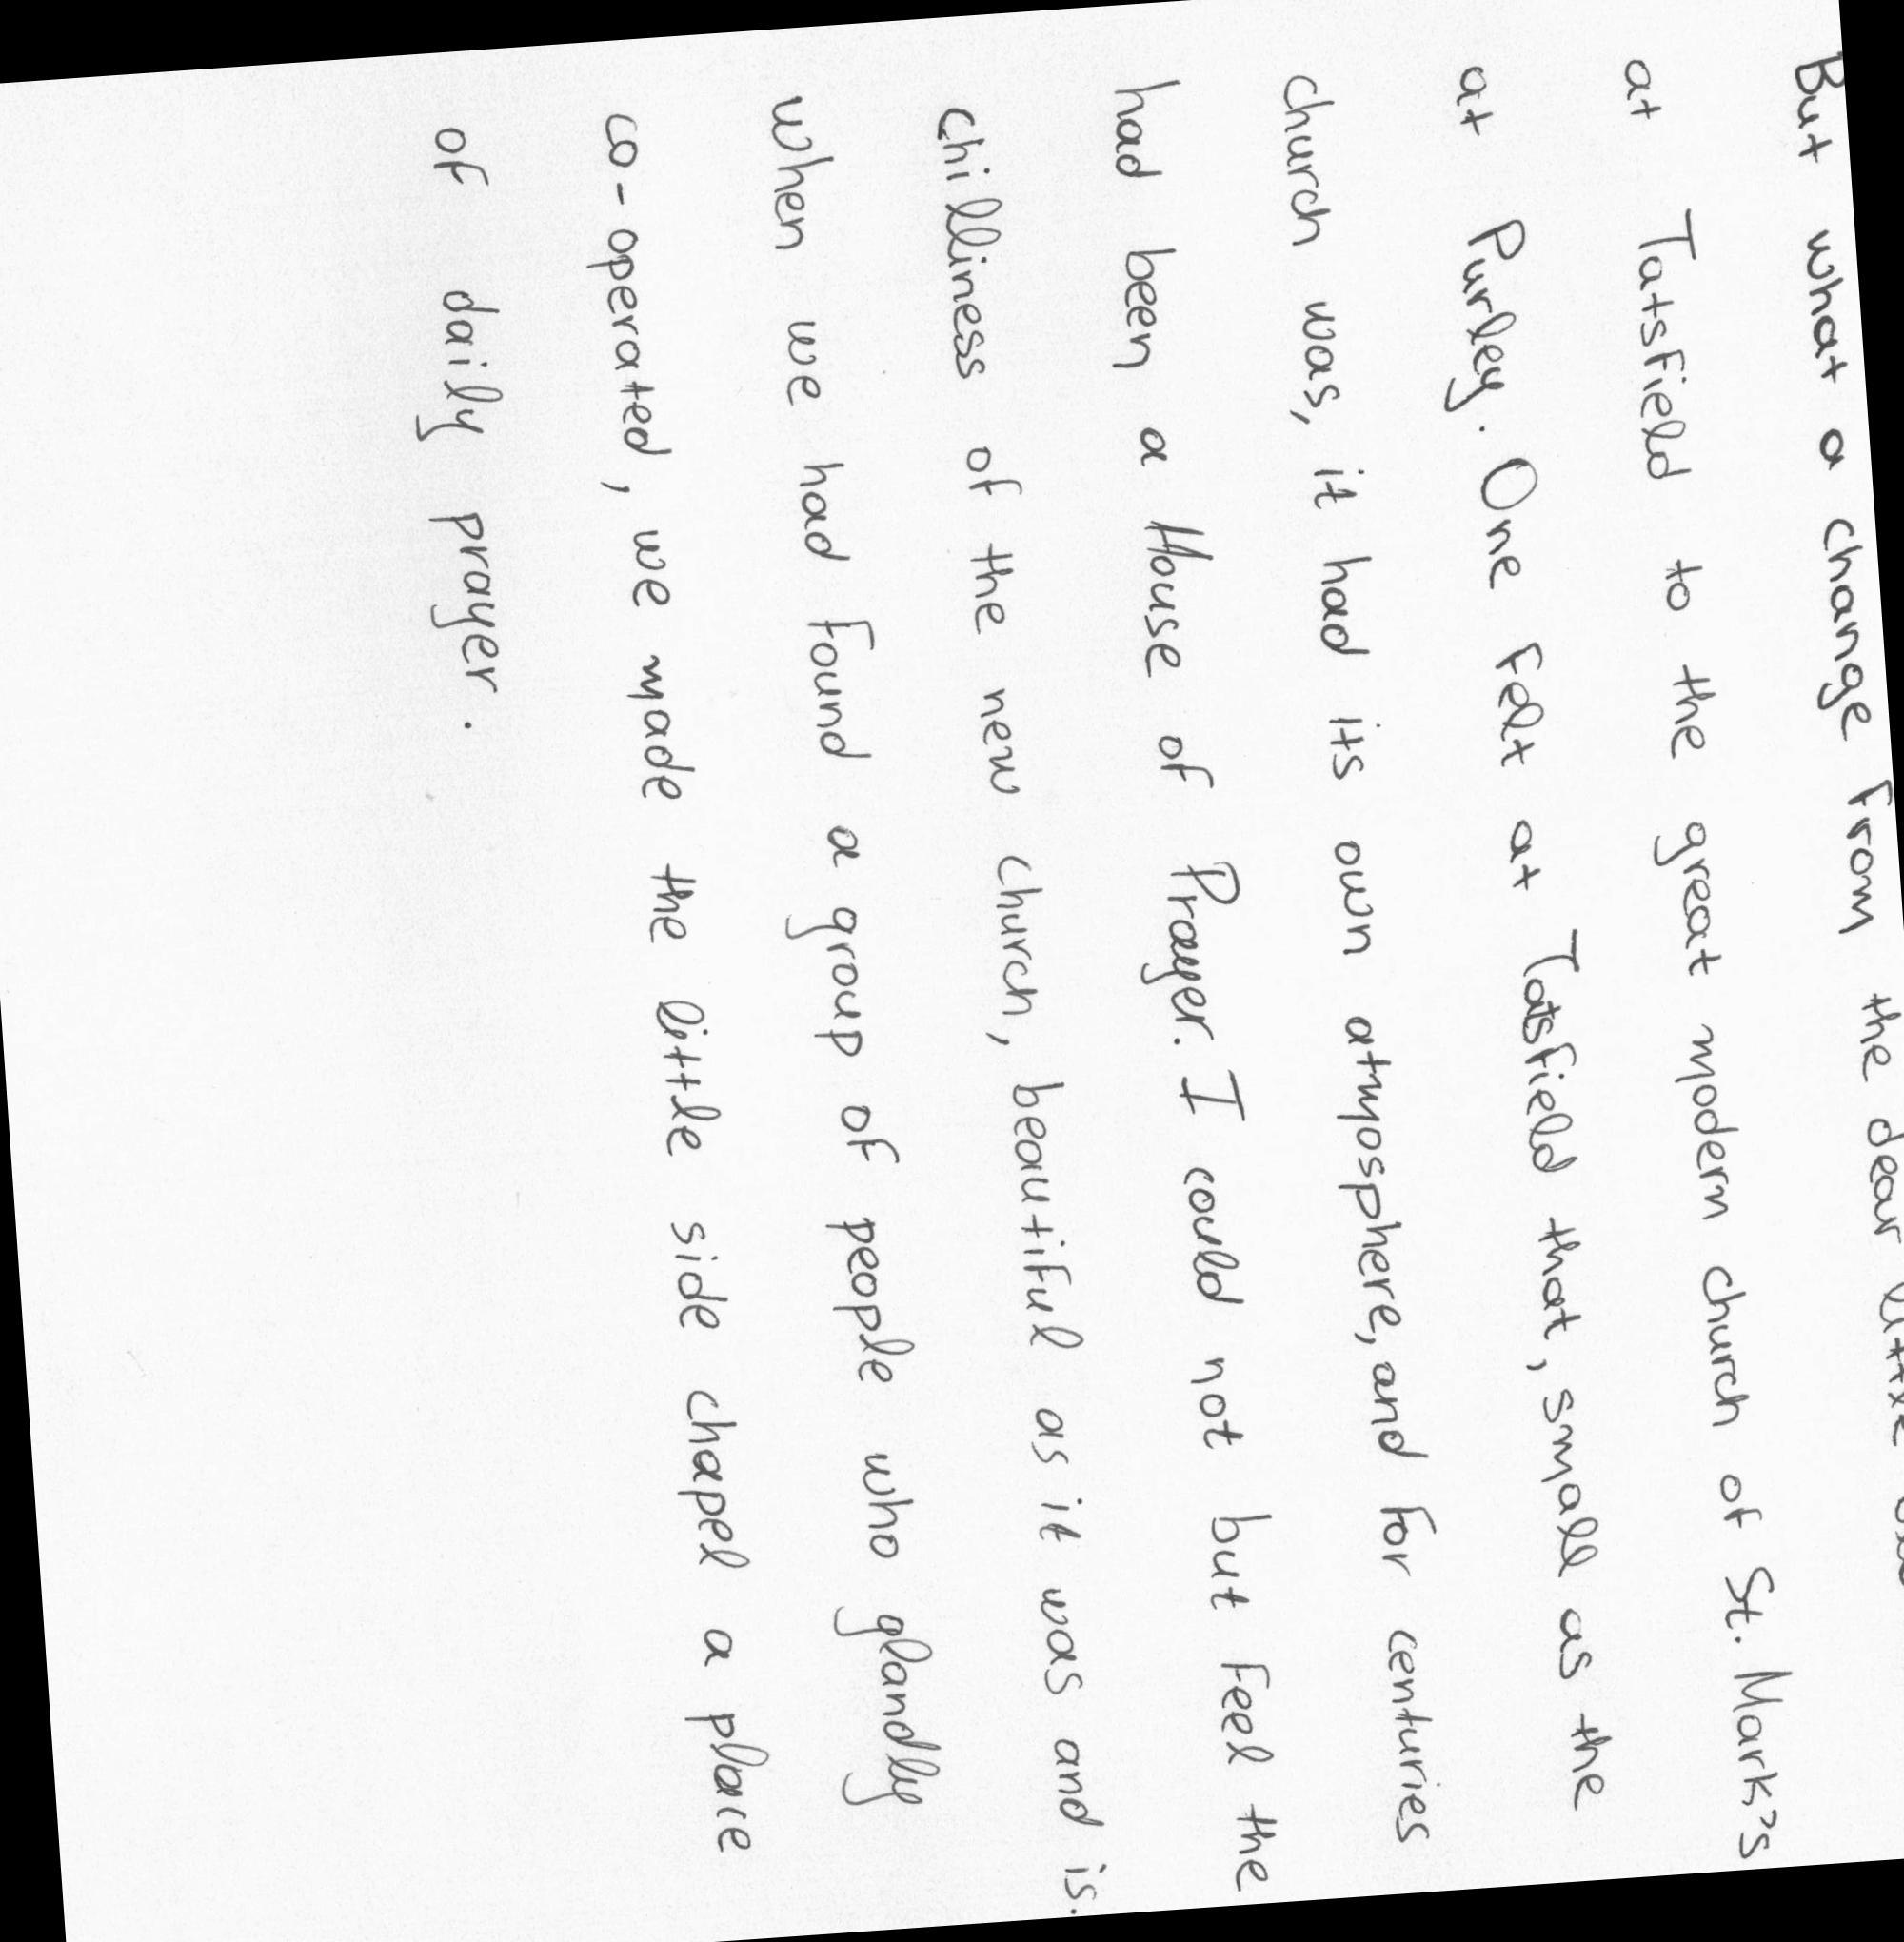 But what a change from the dear little
at Tatsfield to the great modern church of St. Mark's
at Purley. One felt at Tatsfield that, small as the
church was, it had its own atmosphere, and for centuries
had been a House of Prayer. I could not but feel the
chilliness of the new church, beautiful as it was and is.
When we had found a group of people who glandly
co-operated, we made the little side chapel a place
of daily prayer.